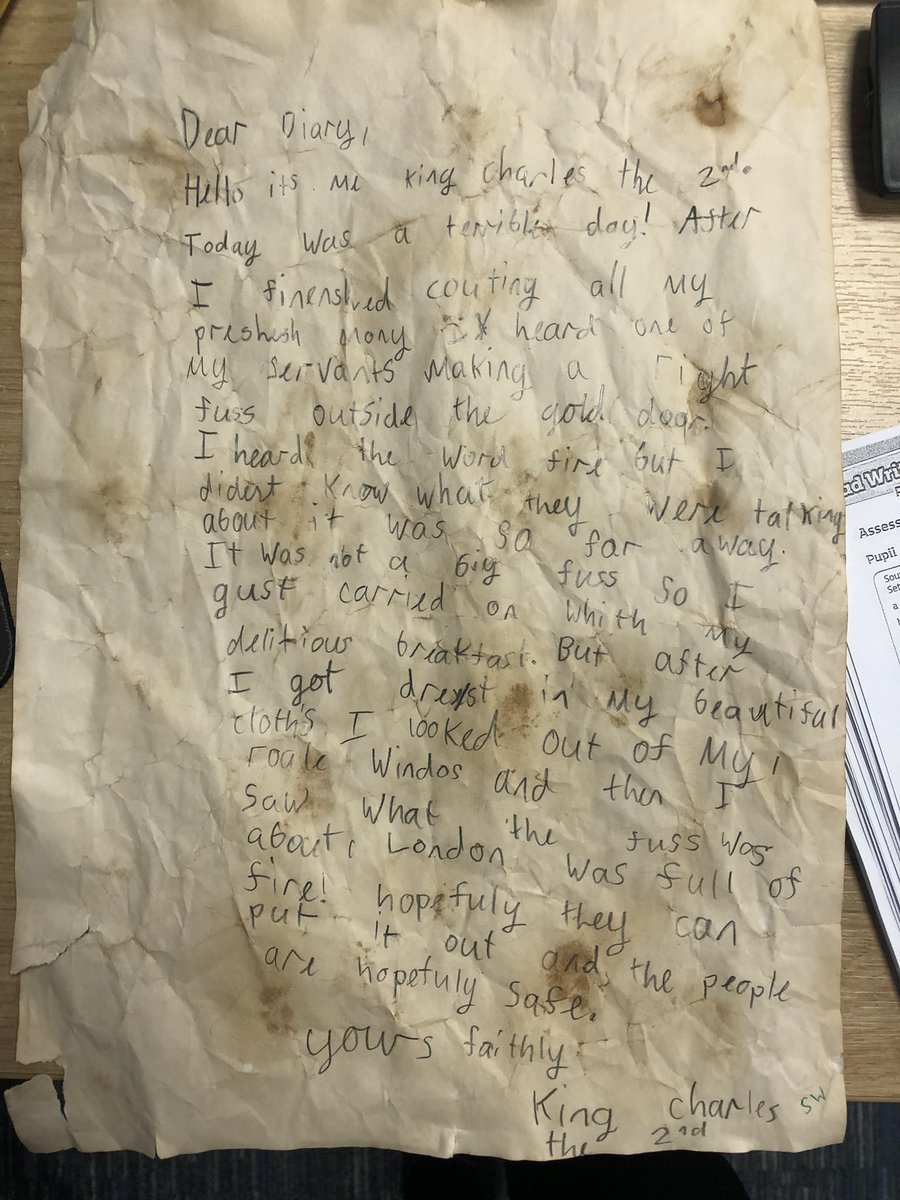 Dear Diary,
Hello its me king charles the 2nd.
Today was a terrible day! After
I finenshed couting all my
preshesh mony I heard one of
my servants making a right
fuss outside the gold door.
I heard the word fire but I
didert know what they were talking
about it was so far away.
It was not a big fuss so I
gust carried on whith my
delitious breakfast. But after
I got drest in my beautiful
cloths I looked out of my,
roale windos and then I
saw what the fuss was
about, London was full of
fire! hopefuly they can
put it out and the people
are hopefuly safe.
yours faithly
King charles sw
the 2nd
ad Wri
Assess
Pupil
Sou
Set
a